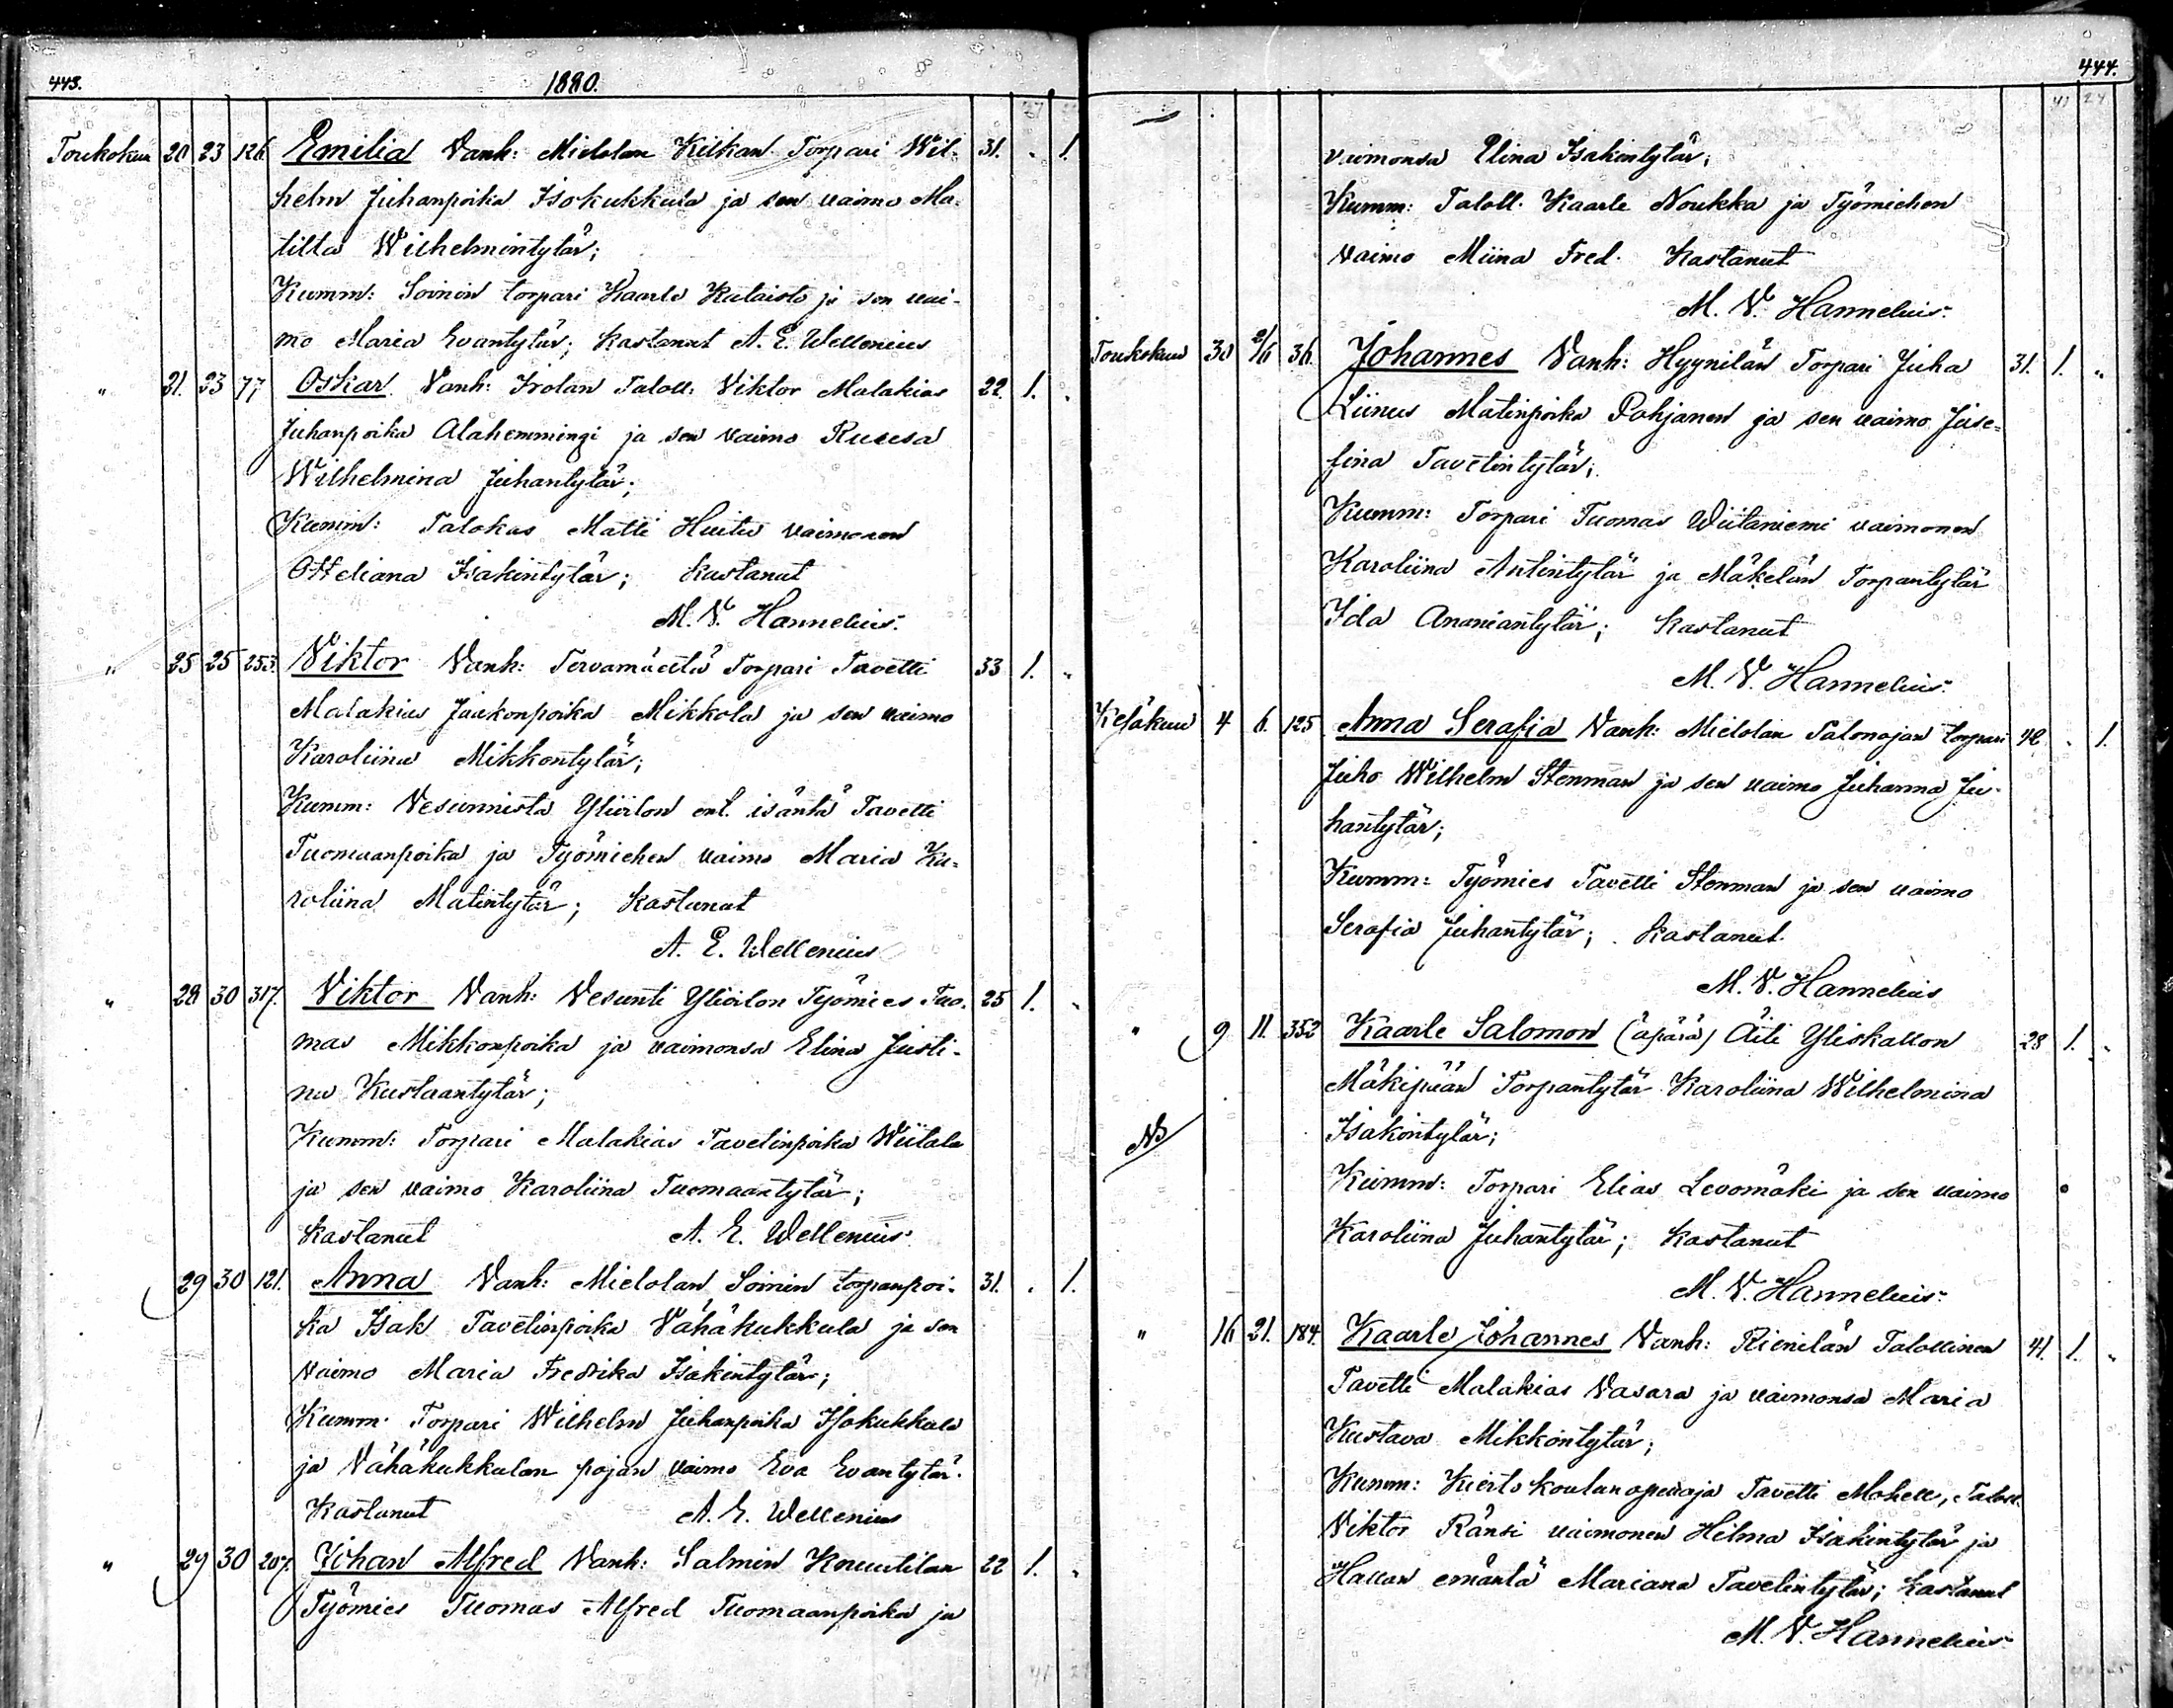 443.
1880.
Toukokuu 20 23 126. Emilia Vanh: Mielolan Kilkan Torpari Wil- 31. . 1.
helm Juhanpoika Isokukkula ja sen vaimo Ma-
tilta Wilhelmintytär;
Kumm: Soinin torpari Kaarle Kataisto ja sen vai-
mo Maria Evantytär; Kastanut A. E. Wellenius
" 21. 23 77 Oskar Vanh: Irolan Taloll: Viktor Malakias 22. 1. .
Juhanpoika Alahemmingi ja sen vaimo Ruusa
Wilhelmina Juhantytär;
Kumm: Talokas Matti Huitu vaimonen
Otteliana Isakintytär; Kastanut
M. V. Hannelius.
" 25 25 253. Viktor Vanh: Tervamäeltä Torpari Tavetti 33 1. "
Malakias Jaakonpoika Mikkola ja sen vaimo
Karoliina Mikkontytär;
Kumm: Vesunnista Yliirlon ent. isäntä Tavetti
Tuomaanpoika ja Työmiehen vaimo Maria Ka-
roliina Matintytär; Kastanut
A. E. Wellenius
" 28 30 317. Viktor Vanh: Vesunti Yliirlon Työmies Tuo- 25 1. .
mas Mikkonpoika ja vaimonsa Elina Justi-
na Kustaantytär;
Kumm: Torpari Malakias Tavetinpoika Wiitala
ja sen vaimo Karoliina Tuomaantytär;
Kastanut A. E. Wellenius
29 30 121. Anna Vanh: Mielolan Soinin torpanpoi- 31. . 1.
ka Isak Tavetinpoika Vähäkukkula ja sen
vaimo Maria Fredrika Isakintytär;
Kumm. Torpari Wilhelm Juhanpoika Isokukkula
ja Vähäkukkulan pojan vaimo Eva Evantytär.
Kastanut A. E. Wellenius
" 29 30 207. Johan Alfred Vanh: Salmin Knuutilan 22 1. .
Työmies Tuomas Alfred Tuomaanpoika ja
444.
vaimonsa Elina Isakintytär;
Kumm: Taloll. Kaarle Noukka ja Työmiehen
vaimo Miina Fred. Kastanut
M. V. Hannelius.
Toukokuu 30 2/6 36. Johannes Vanh: Hyynilän Torpari Juha 31. 1. "
Liinus Matinpoika Pohjanen ja sen vaimo Juse-
fina Tavetintytär;
Kumm: Torpari Tuomas Wiitaniemi vaimonen
Karoliina Antintytär ja Mäkelän Torpantytär
Ida Ananiantytär; Kastanut
M. V. Hannelius.
Kesäkuu 4 6. 125 Anna Serafia Vanh: Mielolan Salonojan torpari 42 . 1.
Juho Wilhelm Stenman ja sen vaimo Juhanna Ju-
hantytär;
Kumm: Työmies Tavetti Stenman ja sen vaimo
Serafia Juhantytär; Kastanut.
M. V. Hannelius
" 9 11. 352 Kaarle Salomon (äpärä) Äiti Yliskallon 28 1. "
Mäkipään Torpantytär Karoliina Wilhelmina
NB Isakintytär;
Kumm: Torpari Elias Levomäki ja sen vaimo
Karoliina Juhantytär; Kastanut
M. V. Hannelius.
" 16 21. 184. Kaarle Johannes Vanh: Rienilän Talollinen 41. 1. "
Tavetti Malakias Vasara ja vaimonsa Maria
Kustava Mikkontytär;
Kumm: Kiertokoulunopettaja Tavetti Mohell, Taloll.
Viktor Ränsi vaimonen Hilma Isakintytär ja
Hallan emäntä Mariana Tavetintytär; Kastanut
M. V. Hannelius.